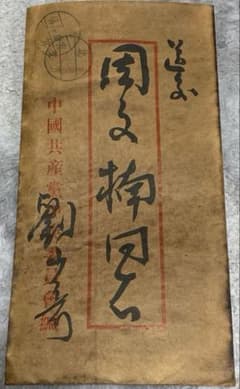 送交
周文楠同志
中國共產黨
劉少奇